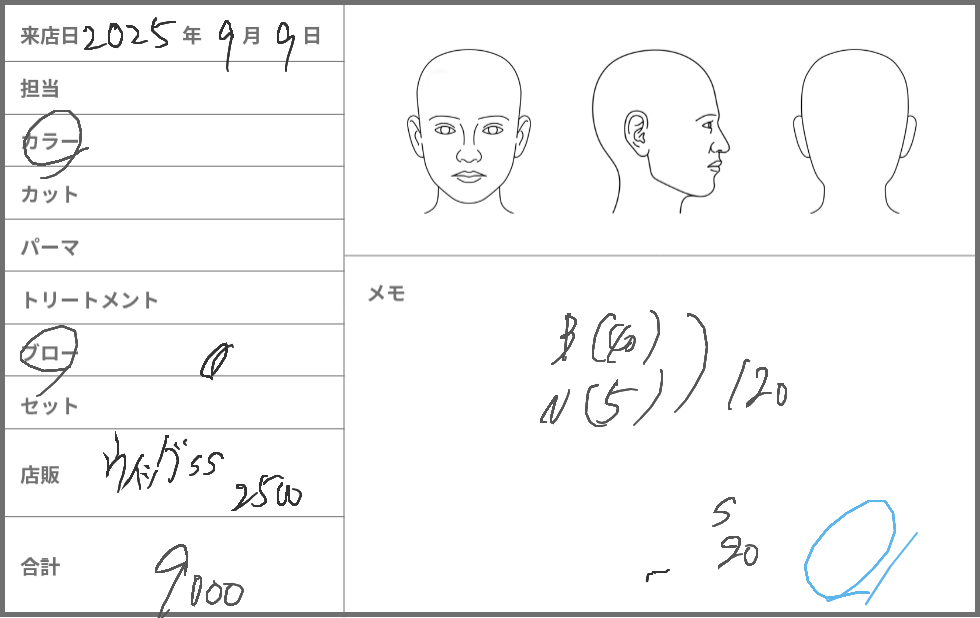 来店日 2025 年 9 月 9 日
担当
カラー
カット
パーマ
トリートメント
ブロー
セット
店販 ウィッグSS 2500
合計 9000
メモ
B (40)
N (5)
120
S
20